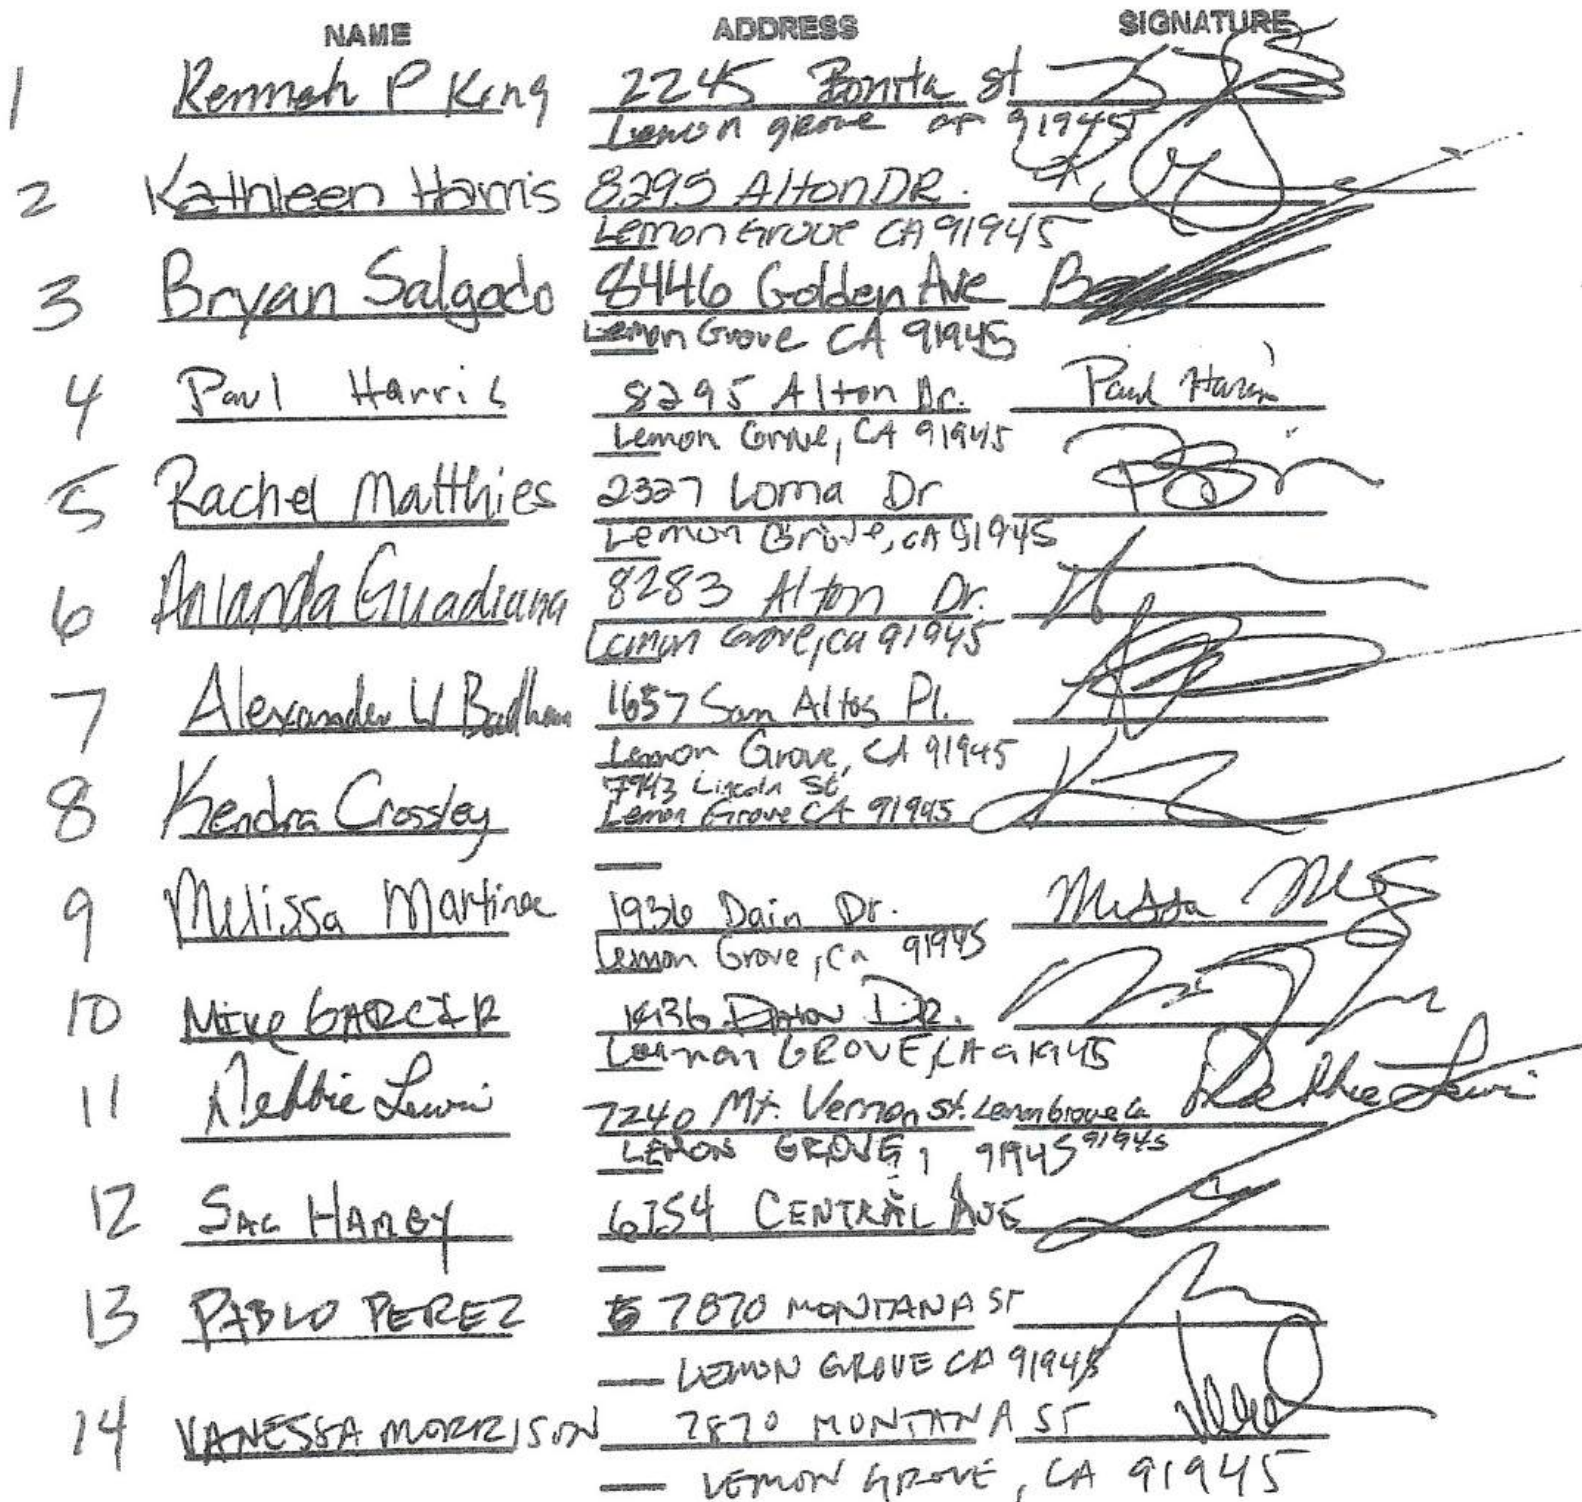 NAME ADDRESS SIGNATURE
1 Kenneth P King 2245 Bonita St
Lemon grove 91945
2 Kathleen Harris 8295 Alton DR.
Lemon Grove CA 91945
3 Bryan Salgado 8446 Golden Ave
Lemon Grove CA 91945
4 Paul Harris 8295 Alton Dr. Paul Harris
Lemon Grove, CA 91945
5 Rachel Matthies 2327 Loma Dr
Lemon Grove, CA 91945
6 Guadiana 8283 Alton Dr.
Lemon Grove, ca 91945
7 Alexander W 1657 San Altos Pl.
Lemon Grove, CA 91945
8 Kendra Crossley 7943 Lincoln St
Lemon Grove CA 91945
9 Melissa Martinez 1936 Dain Dr.
Lemon Grove, Ca 91945
10 Mike GARCIA 1936 DAIN DR.
Lemon GROVE, CA 91945
11 Debbie Lewis 7240 Mt. Vernon St. Lemon Grove Ca 91945 Debbie Lewis
LEMON GROVE, 91945
12 HAMBY 6754 CENTRAL AVE
13 PABLO PEREZ 7870 MONTANA ST
LEMON GROVE CA 91945
14 VANESSA MORRISON 7870 MONTANA ST
LEMON GROVE, CA 91945